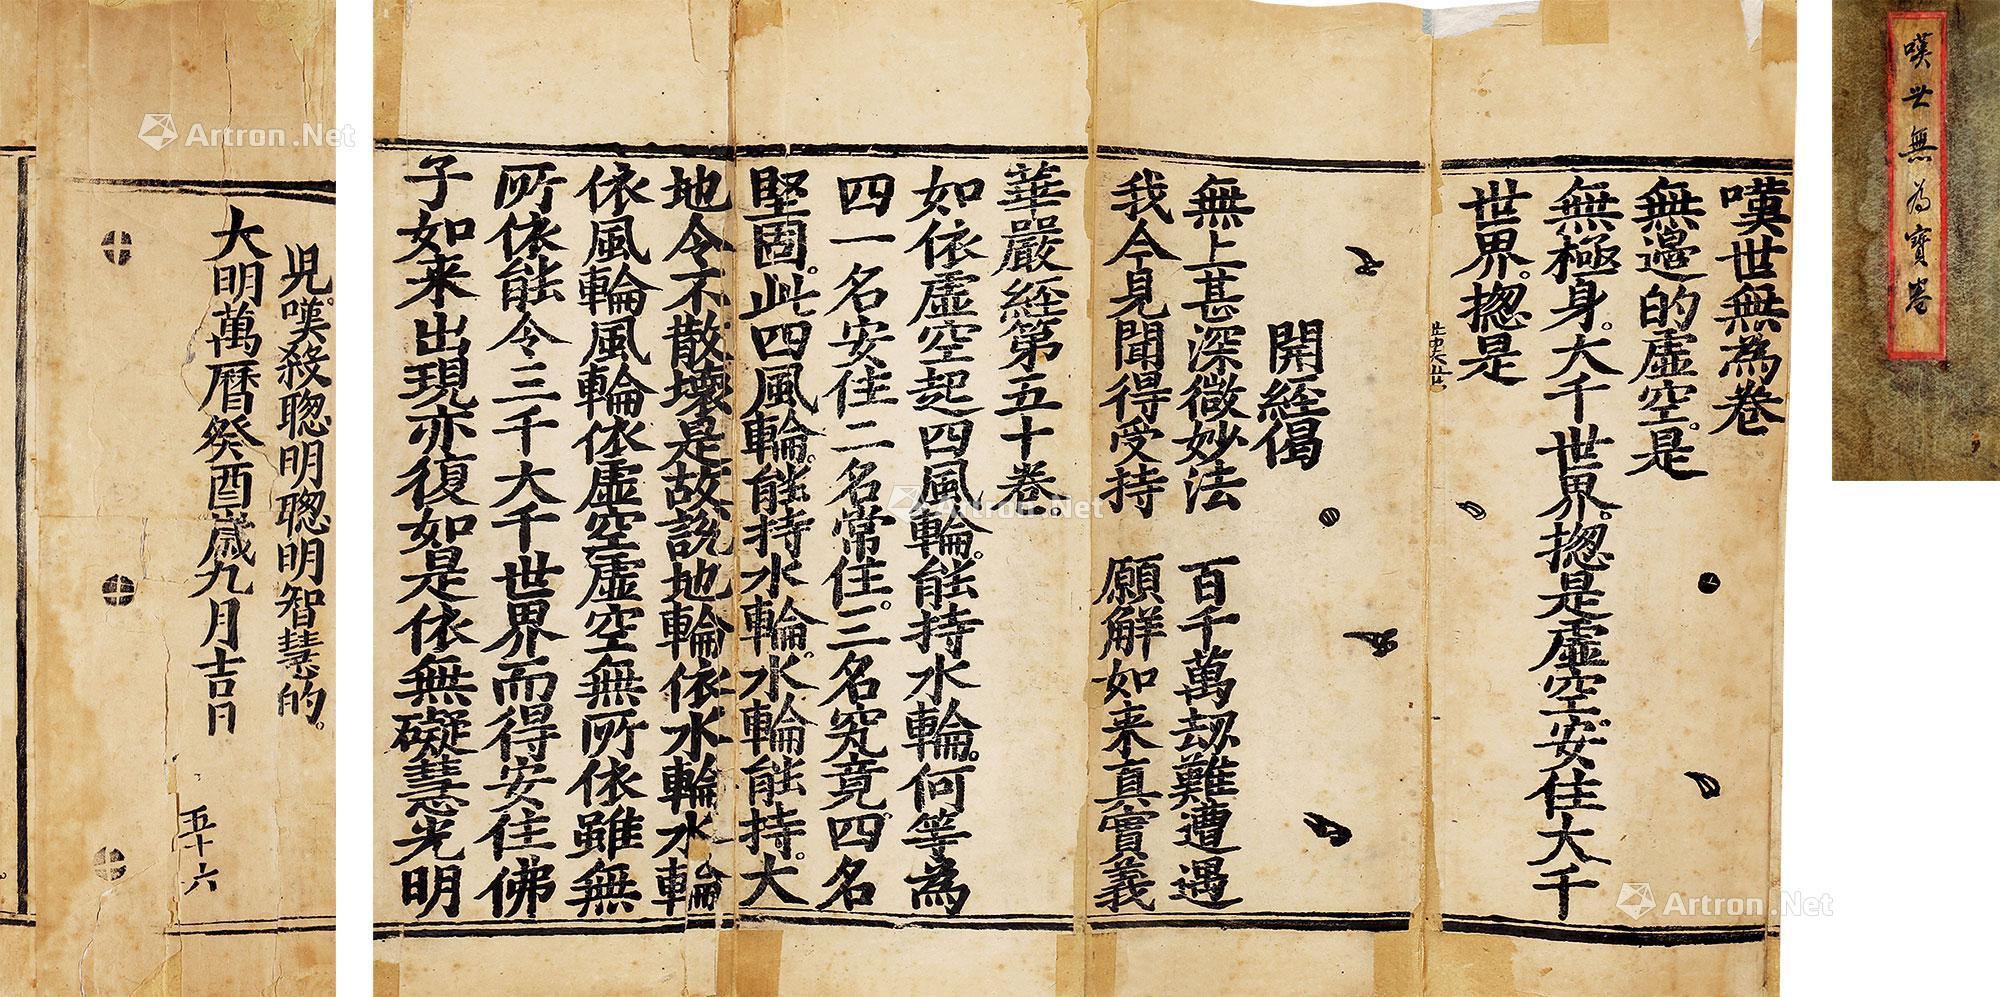 嘆世無為寶卷
嘆世無為卷
無邉的虛空。是
無極身。大千世界。揔是虛空。安住大千
世界。揔是
開經偈
無上甚深微妙法 百千萬劫難遭遇
我今見聞得受持 願解如来真實義
華嚴經第五十卷。
如依虛空起四風輪。能持水輪。何等為
四一名安住二名常住。三名究竟。四名
堅固。此四風輪。能持水輪。水輪能持。大
地令不散壞是故說地輪依水輪水輪
依風輪風輪依虛空虛空無所依雖無
所依能令三千大千世界而得安住佛
子如来出現亦復如是依無礙慧光明
児。嘆殺聦明聦明智慧的。
大明萬曆癸酉歲九月吉日
五十六
Artron.Net
Artron.Net
Artron.Net